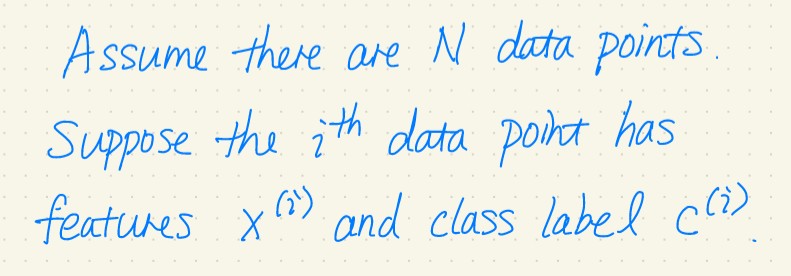 Assume there are N data points.
Suppose the ith data point has
features x^(i) and class label c^(i).